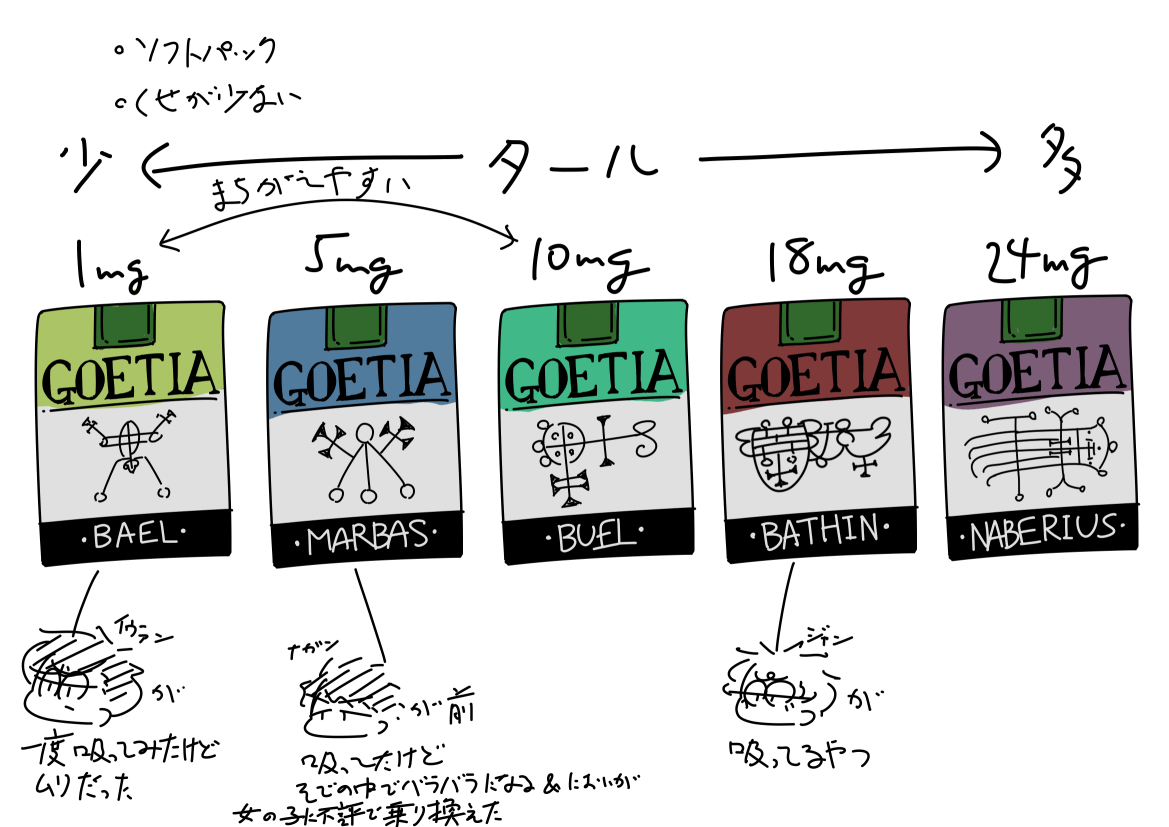 ・ソフトパック
・くせが少ない
少 ← タール → 多
まちがえやすい
1mg 5mg 10mg 18mg 24mg
GOETIA GOETIA GOETIA GOETIA GOETIA
・BAEL・ ・MARBAS・ ・BUEL・ ・BATHIN・ ・NABERIUS・
イヴァン
が
一度吸ってみたけど
ムリだった
ナガン
が前
吸ってたけど
そでの中でバラバラになる&においが
女の子に不評で乗り換えた
ジャン
が
吸ってるやつ